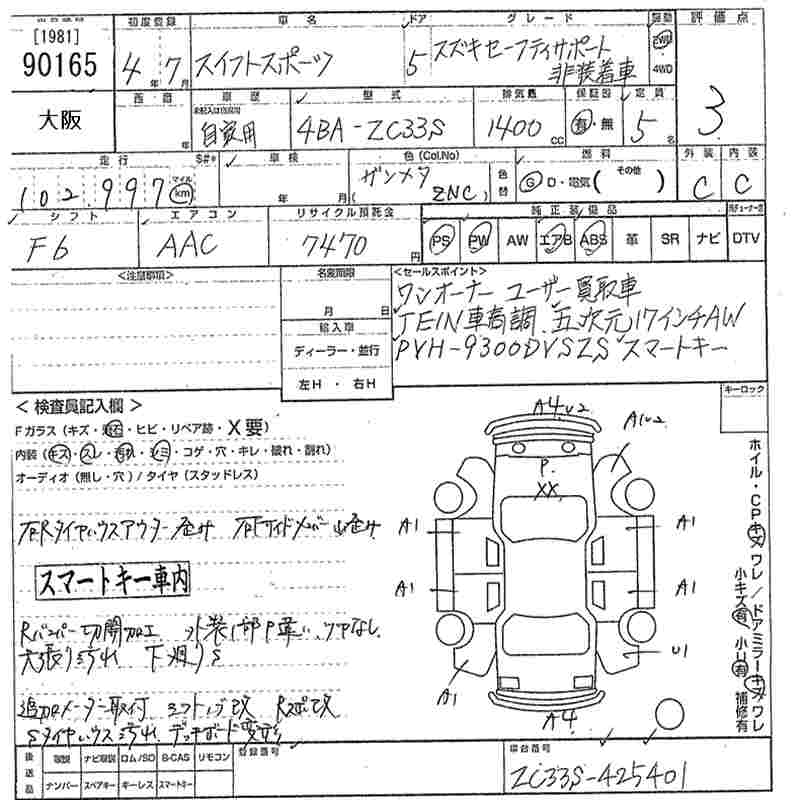 [1981]
90165
大阪
初度登録
4年 7月
車名
スイフトスポーツ
ドア
5
グレード
スズキセーフティサポート
非装着車
駆動
2WD
4WD
評価点
3
車歴
自家用
型式
4BA-ZC33S
排気量
1400cc
保証書
有・無
定員
5名
走行
102,997
マイル
km
車検
年 月
色(Col.No)
ガンメタ
(ZNC)
色替
燃料
G D・電気( その他 )
外装
C
内装
C
シフト
F6
エアコン
AAC
リサイクル預託金
7470円
純正装備品
PS PW AW エアB ABS 革 SR ナビ DTV
<注意事項>
名変期限
月 日
輸入車
ディーラー・並行
左H ・ 右H
<セールスポイント>
ワンオーナー ユーザー買取車
TEIN車高調、五次元17インチAW
PVH-9300DVSZS スマートキー
キーロック
<検査員記入欄>
Fガラス(キズ・飛石・ヒビ・リペア跡・X要)
内装(キズ・スレ・汚れ・シミ・コゲ・穴・キレ・破れ・割れ)
オーディオ(無し・穴)/タイヤ(スタッドレス)
スマートキー車内
Rバンパー切開加工 外装1部P違い、ツヤなし
天張り汚れ 下廻りS
追加メーター取付 シフトノブ改 Rスポ改
Sタイヤハウス汚れ デッキボード変形
A4U2
A1U2
P.
XX
A1
A1
A1
A1
A1
U1
A4
ホイル・CPキズワレ/ドアミラーキズワレ
小キズ有 小U有 補修有
後送品
取説 ナビ取説 ロム/SD B-CAS リモコン
ナンバー スペアキー キーレス スマートキー
登録番号
車台番号
ZC33S-425401